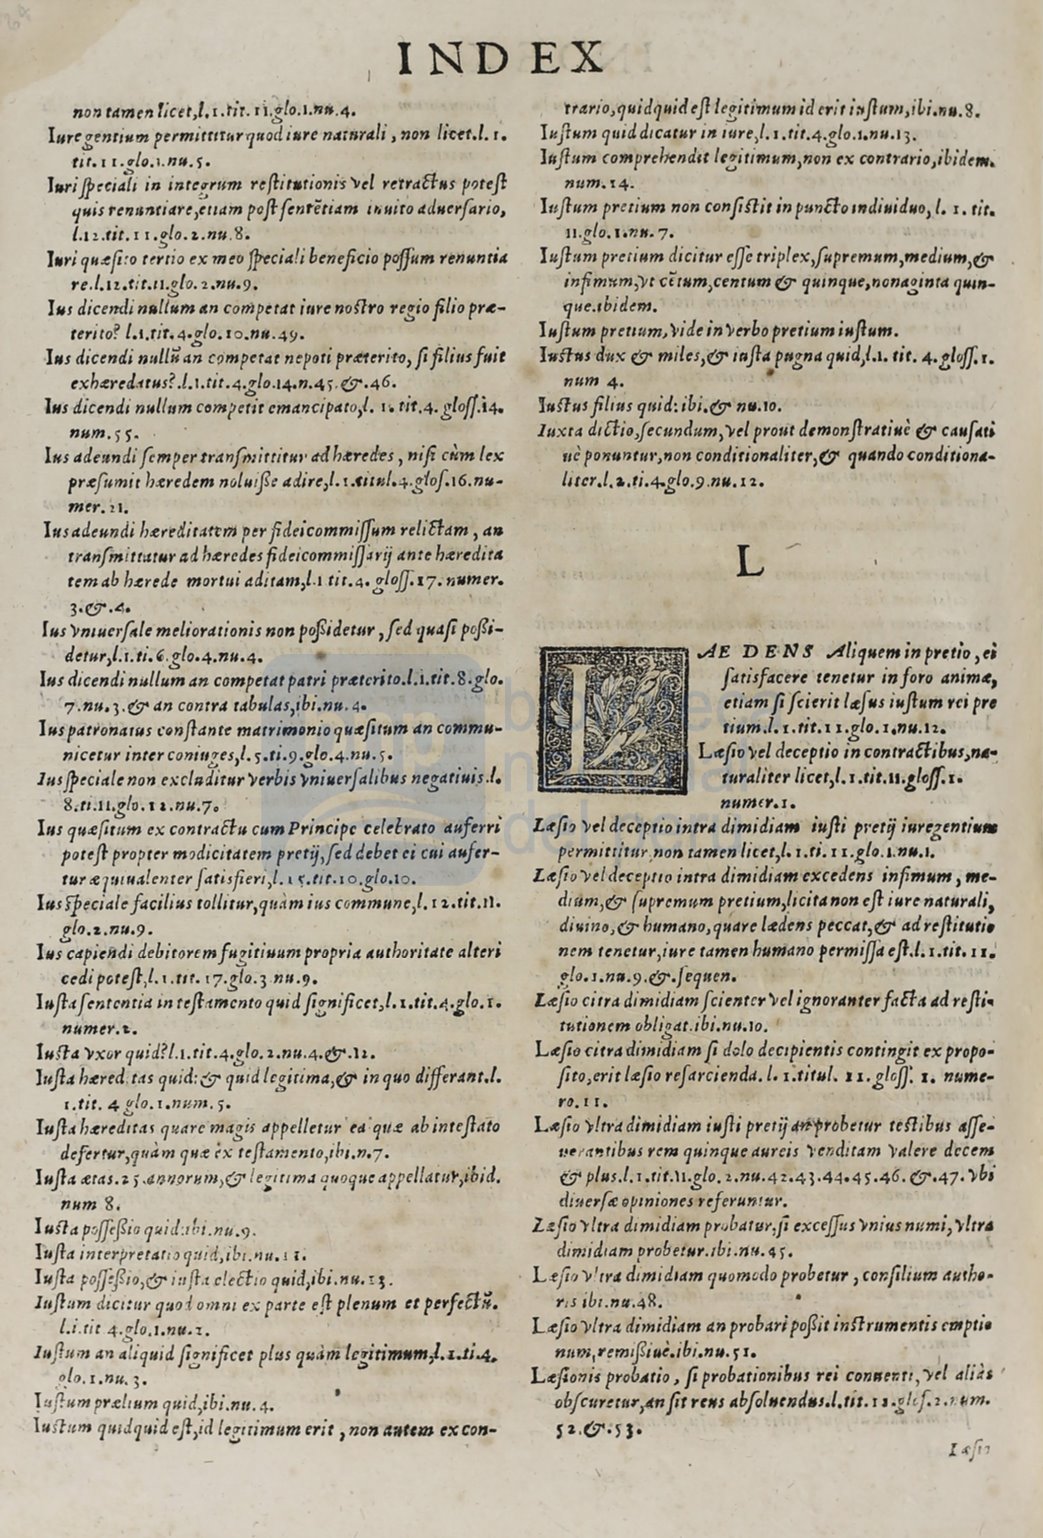 INDEX
non tamen licet,l.1.tit.11.glo.1.nu.4.
Iure gentium permittitur quod iure naturali, non licet.l.1.
tit.11.glo.1.nu.5.
Iuri speciali in integrum restitutionis vel retractus potest
quis renuntiare,etiam post sentẽtiam inuito aduersario,
l.12.tit.11.glo.2.nu.8.
Iuri quæsito tertio ex meo speciali beneficio possum renuntia
re.l.12.tit.11.glo.2.nu.9.
Ius dicendi nullum an competat iure nostro regio filio præ-
terito? l.1.tit.4.glo.10.nu.49.
Ius dicendi nullũ an competat nepoti præterito, si filius fuit
exhæredatus?.l.1.tit.4.glo.14.n.45.&.46.
Ius dicendi nullum competit emancipato,l.1.tit.4.gloss.14.
num.55.
Ius adeundi semper transmittitur ad hæredes, nisi cùm lex
præsumit hæredem noluisse adire,l.1.titul.4.glos.16.nu-
mer.21.
Ius adeundi hæreditatem per fideicommissum relictam, an
transmittatur ad hæredes fideicommissarij ante hæredita
tem ab hærede mortui aditam,l.1 tit.4.gloss.17.numer.
3.&.4.
Ius vniuersale meliorationis non possidetur, sed quasi possi-
detur,l.1.ti.6.glo.4.nu.4.
Ius dicendi nullum an competat patri præterito.l.1.tit.8.glo.
7.nu.3.& an contra tabulas,ibi.nu.4.
Ius patronatus constante matrimonio quæsitum an commu-
nicetur inter coniuges,l.5.ti.9.glo.4.nu.5.
Ius speciale non excluditur verbis vniuersalibus negatiuis.l.
8.ti.11.glo.12.nu.7.
Ius quæsitum ex contractu cum Principe celebrato auferri
potest propter modicitatem pretij,sed debet ei cui aufer-
tur æquiualenter satisfieri,l.15.tit.10.glo.10.
Ius speciale facilius tollitur,quàm ius commune,l.12.tit.11.
glo.2.nu.9.
Ius capiendi debitorem fugitiuum propria authoritate alteri
cedi potest,l.1.tit.17.glo.3 nu.9.
Iusta sententia in testamento quid significet,l.1.tit.4.glo.1.
numer.2.
Iusta vxor quid?l.1.tit.4.glo.2.nu.4.&.12.
Iusta hæreditas quid:& quid legitima,& in quo differant.l.
1.tit. 4 glo.1.num.5.
Iusta hæreditas quare magis appelletur ea quæ ab intestato
defertur,quàm quæ ex testamento,ibi.n.7.
Iusta ætas.25.annorum,& legitima quoque appellatur,ibid.
num 8.
Iusta possessio quid:ibi.nu.9.
Iusta interpretatio quid,ibi.nu.11.
Iusta possessio,& iusta electio quid,ibi.nu.13.
Iustum dicitur quod omni ex parte est plenum et perfectũ.
l.i.tit 4.glo.1.nu.2.
Iustum an aliquid significet plus quàm legitimum,l.1.ti.4.
glo.1.nu.3.
Iustum prælium quid,ibi.nu.4.
Iustum quidquid est,id legitimum erit, non autem ex con-
trario,quidquid est legitimum id erit iustum,ibi.nu.8.
Iustum quid dicatur in iure,l.1.tit.4.glo.1.nu.13.
Iustum comprehendit legitimum,non ex contrario,ibidem.
num.14.
Iustum pretium non consistit in puncto indiuiduo, l. 1. tit.
11.glo.1.nu.7.
Iustum pretium dicitur esse triplex,supremum,medium,&
infimum,vt cẽtum,centum & quinque,nonaginta quin-
que.ibidem.
Iustum pretium,vide in verbo pretium iustum.
Iustus dux & miles,& iusta pugna quid,l.1. tit. 4.gloss.1.
num 4.
Iustus filius quid:ibi.& nu.10.
Iuxta dictio,secundum,vel prout demonstratiuè & causati
uè ponuntur,non conditionaliter,& quando conditiona-
liter.l.2.ti.4.glo.9.nu.12.
L
LAEDENS Aliquem in pretio, ei
satisfacere tenetur in foro animæ,
etiam si scierit læsus iustum rei pre
tium.l.1.tit.11.glo.1.nu.12.
Læsio vel deceptio in contractibus,na-
turaliter licet,l.1.tit.11.gloss.1.
numer.1.
Læsio vel deceptio intra dimidiam iusti pretij iure gentium
permittitur,non tamen licet,l.1.ti.11.glo.1.nu.1.
Læsio vel deceptio intra dimidiam excedens infimum, me-
diũm,& supremum pretium,licita non est iure naturali,
diuino,& humano,quare lædens peccat,& ad restitutio
nem tenetur,iure tamen humano permissa est.l.1.tit.11.
glo.1.nu.9.&.sequen.
Læsio citra dimidiam scienter vel ignoranter facta ad resti-
tutionem obligat.ibi.nu.10.
Læsio citra dimidiam si dolo decipientis contingit ex propo-
sito,erit læsio resarcienda. l. 1.titul. 11.gloss. 1. nume-
ro.11.
Læsio vltra dimidiam iusti pretij an probetur testibus asse-
uerantibus rem quinque aureis venditam valere decem
& plus.l.1.tit.11.glo.2.nu.42.43.44.45.46.&.47.vbi
diuersæ opiniones referuntur.
Læsio vltra dimidiam probatur,si excessus vnius numi,vltra
dimidiam probetur.ibi.nu.45.
Læsio vltra dimidiam quomodo probetur, consilium autho-
ris ibi.nu.48.
Læsio vltra dimidiam an probari possit instrumentis emptio
num,remissiuè.ibi.nu.51.
Læsionis probatio, si probationibus rei conuenti, vel aliàs
obscuretur,an sit reus absoluendus.l.tit.11.glos.2.num.
52.&.53.
Læsio